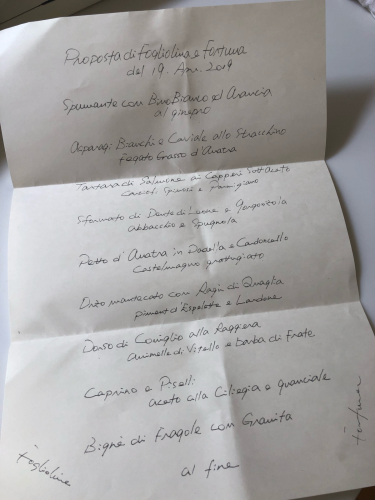 Proposta di Fogliolina e Fortuna
del 19. Apr. 2019
Spumante con Buo Bianco ed Arancia
al ginepro
Asparagi Bianchi e Caviale allo Stracchino
Fegato Grasso d'Anatra
Tartara di Salmone ai Capperi Sott'Aceto
Carciofi Spinosi e Parmigiano
Sformato di Dente di Leone e Gorgonzola
abbacchio e Spugnola
Petto d'Anatra in Padella e
Castelmagno grattugiato
mantecato con Ragù di Quaglia
Piment d'Espelette e
Dorso di Coniglio alla
Animelle di Vitello e barba di Frate
Caprino e Piselli
aceto alla Ciliegia e guanciale
Bignè di Fragole con Granita
al fine
Fogliolina
Fortuna